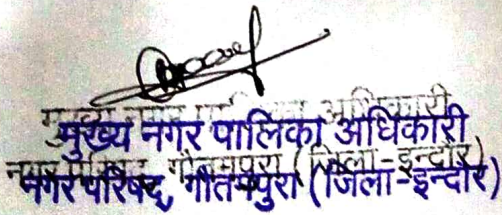 मुख्य नगर पालिका अधिकारी
नगर परिषद, गौतमपुरा (जिला-इन्दौर)